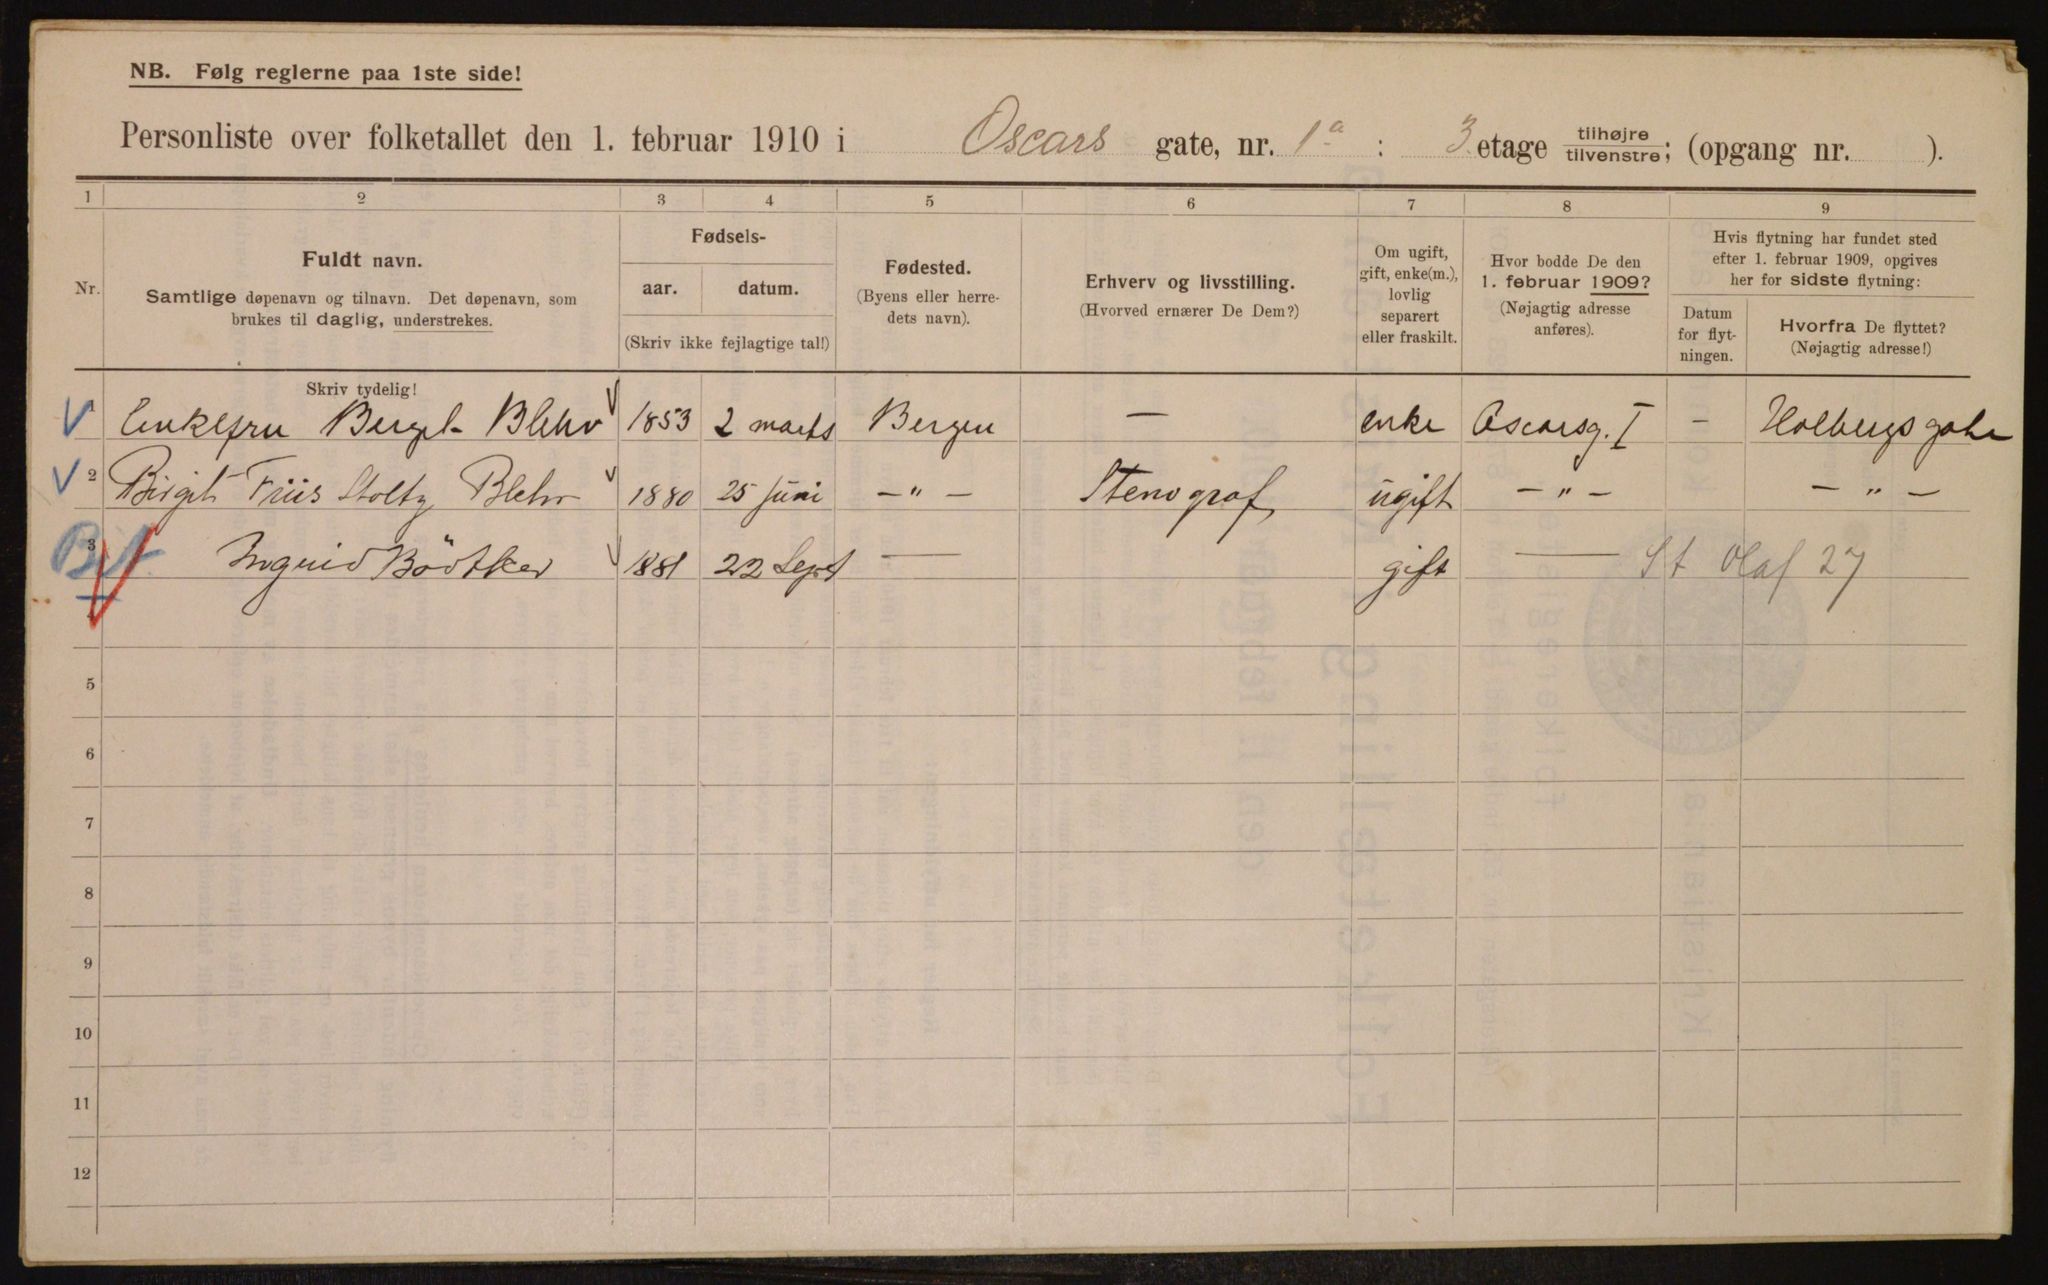 NB. Følg reglerne paa 1ste side!
Personliste over folketallet den 1. februar 1910 i Oscars gate, nr. 1a : 3 etage tilhøjre/tilvenstre; (opgang nr. ).
1 2 3 4 5 6 7 8 9
Nr.
Fuldt navn.
Samtlige døpenavn og tilnavn. Det døpenavn, som
brukes til daglig, understrekes.
Skriv tydelig!
Fødsels-
aar. datum.
(Skriv ikke fejlagtige tal!)
Fødested.
(Byens eller herre-
dets navn).
Erhverv og livsstilling.
(Hvorved ernærer De Dem?)
Om ugift,
gift, enke(m.),
lovlig
separert
eller fraskilt.
Hvor bodde De den
1. februar 1909?
(Nøjagtig adresse
anføres).
Hvis flytning har fundet sted
efter 1. februar 1909, opgives
her for sidste flytning:
Datum
for flyt-
ningen.
Hvorfra De flyttet?
(Nøjagtig adresse!)
Enkefru Blehr 1853 2 marts Bergen — enke Oscarsg. I — Holbergs gate
2 Birgit Friis Stoltz Blehr 1880 25 Juni — " — Stenograf ugift — " — — " —
3 Ingrid Bödtker 1881 22 Sept — gift — St Olaf 27
5
6
7
8
9
10
11
12